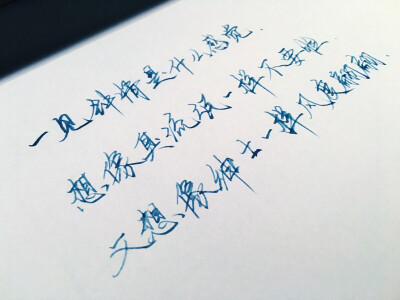 一见钟情是什么感觉.
想像臭流氓一样不要脸
又想像绅士一样风度翩翩.